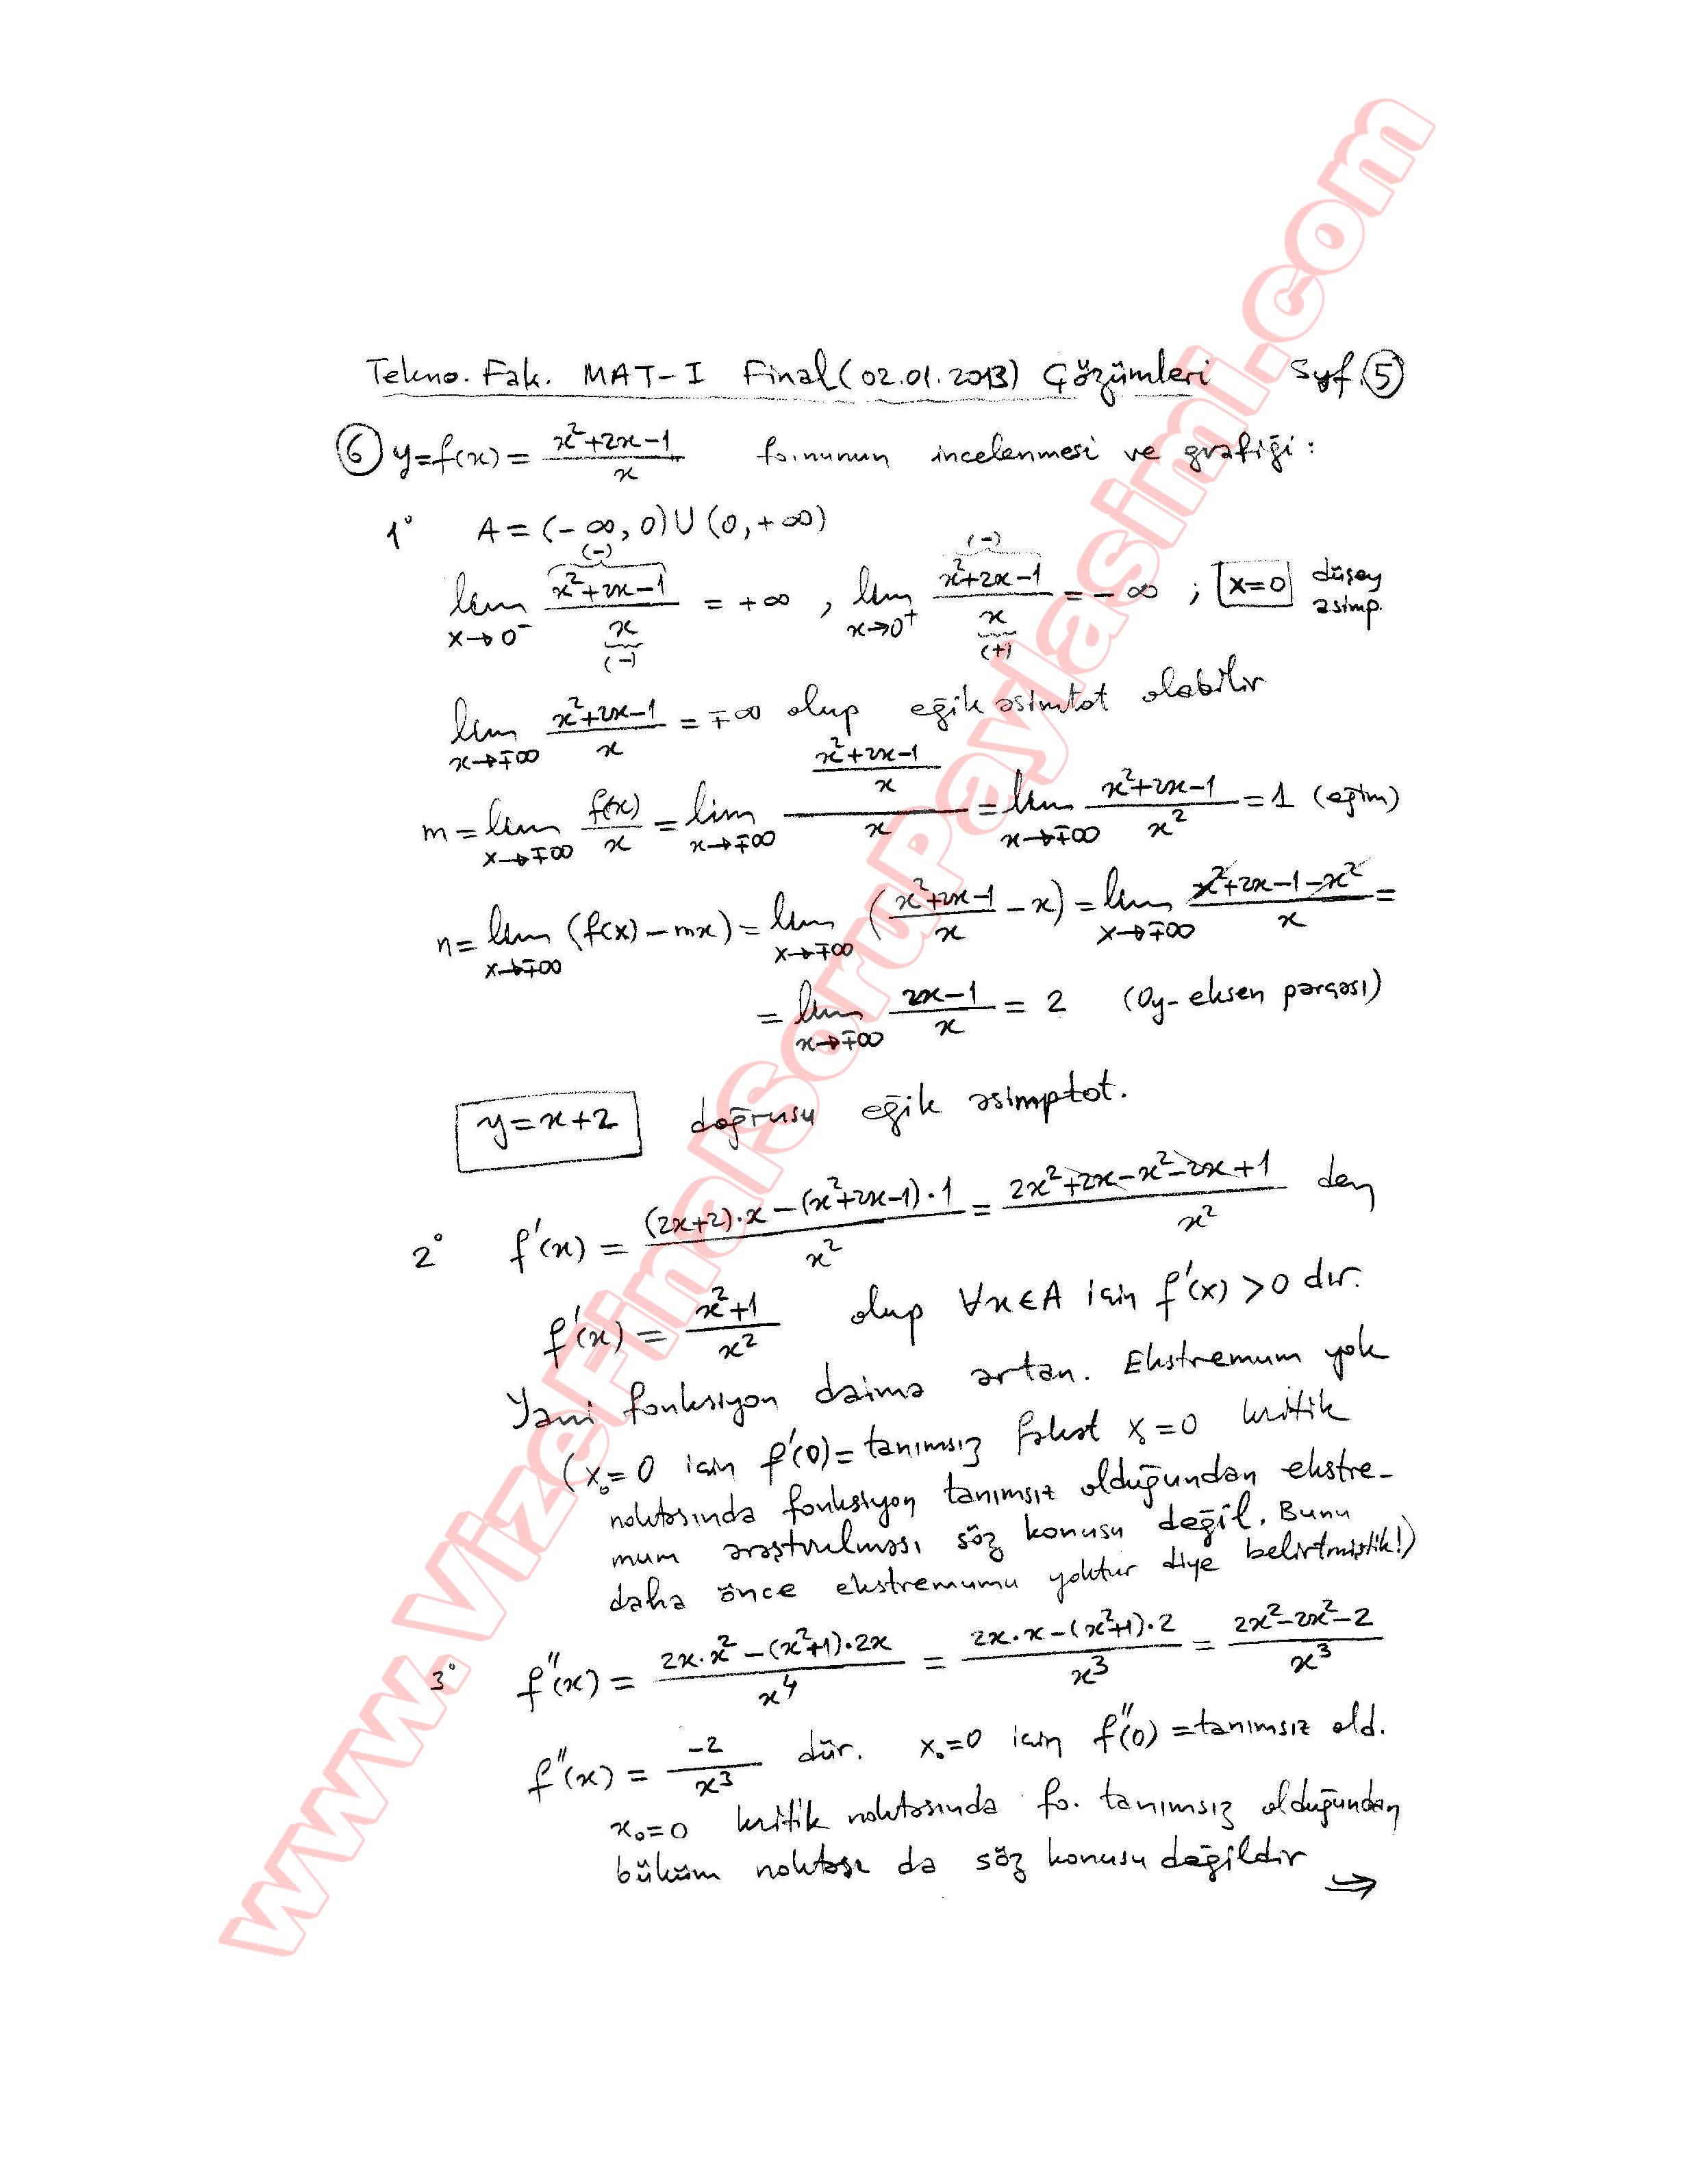 Tekno. Fak. MAT-I Final (02.01.2013) Çözümleri Syf. 5
6 y=f(x)= (x²+2x-1)/x fo.nunun incelenmesi ve grafiği:
1° A = (-∞, 0) ∪ (0, +∞)
lim x→0⁻ (x²+2x-1)/x = +∞ , lim x→0⁺ (x²+2x-1)/x = -∞ ; x=0 düşey asimp.
(-) (-) (-) (+)
lim x→∓∞ (x²+2x-1)/x = ∓∞ olup eğik asimtot olabilir
m = lim x→∓∞ f(x)/x = lim x→∓∞ ((x²+2x-1)/x)/x = lim x→∓∞ (x²+2x-1)/x² = 1 (eğim)
n = lim x→∓∞ (f(x)-mx) = lim x→∓∞ ((x²+2x-1)/x - x) = lim x→∓∞ (x²+2x-1-x²)/x =
= lim x→∓∞ (2x-1)/x = 2 (Oy-eksen parçası)
y=x+2 doğrusu eğik asimptot.
2° f'(x) = ((2x+2)·x-(x²+2x-1)·1)/x² = (2x²+2x-x²-2x+1)/x² den
f'(x) = (x²+1)/x² olup ∀x∈A için f'(x) >0 dır.
Yani fonksiyon daima artan. Ekstremum yok
(x₀=0 için f'(0)=tanımsız fakat x₀=0 kritik
noktasında fonksiyon tanımsız olduğundan ekstre-
mum araştırılması söz konusu değil. Bunu
daha önce ekstremumu yoktur diye belirtmiştik!)
3° f''(x) = (2x·x²-(x²+1)·2x)/x⁴ = (2x·x-(x²+1)·2)/x³ = (2x²-2x²-2)/x³
f''(x) = -2/x³ dür. x₀=0 için f''(0) =tanımsız old.
x₀=0 kritik noktasında fo. tanımsız olduğundan
büküm noktası da söz konusu değildir →
www.VizeFinalSoruPaylasimi.com